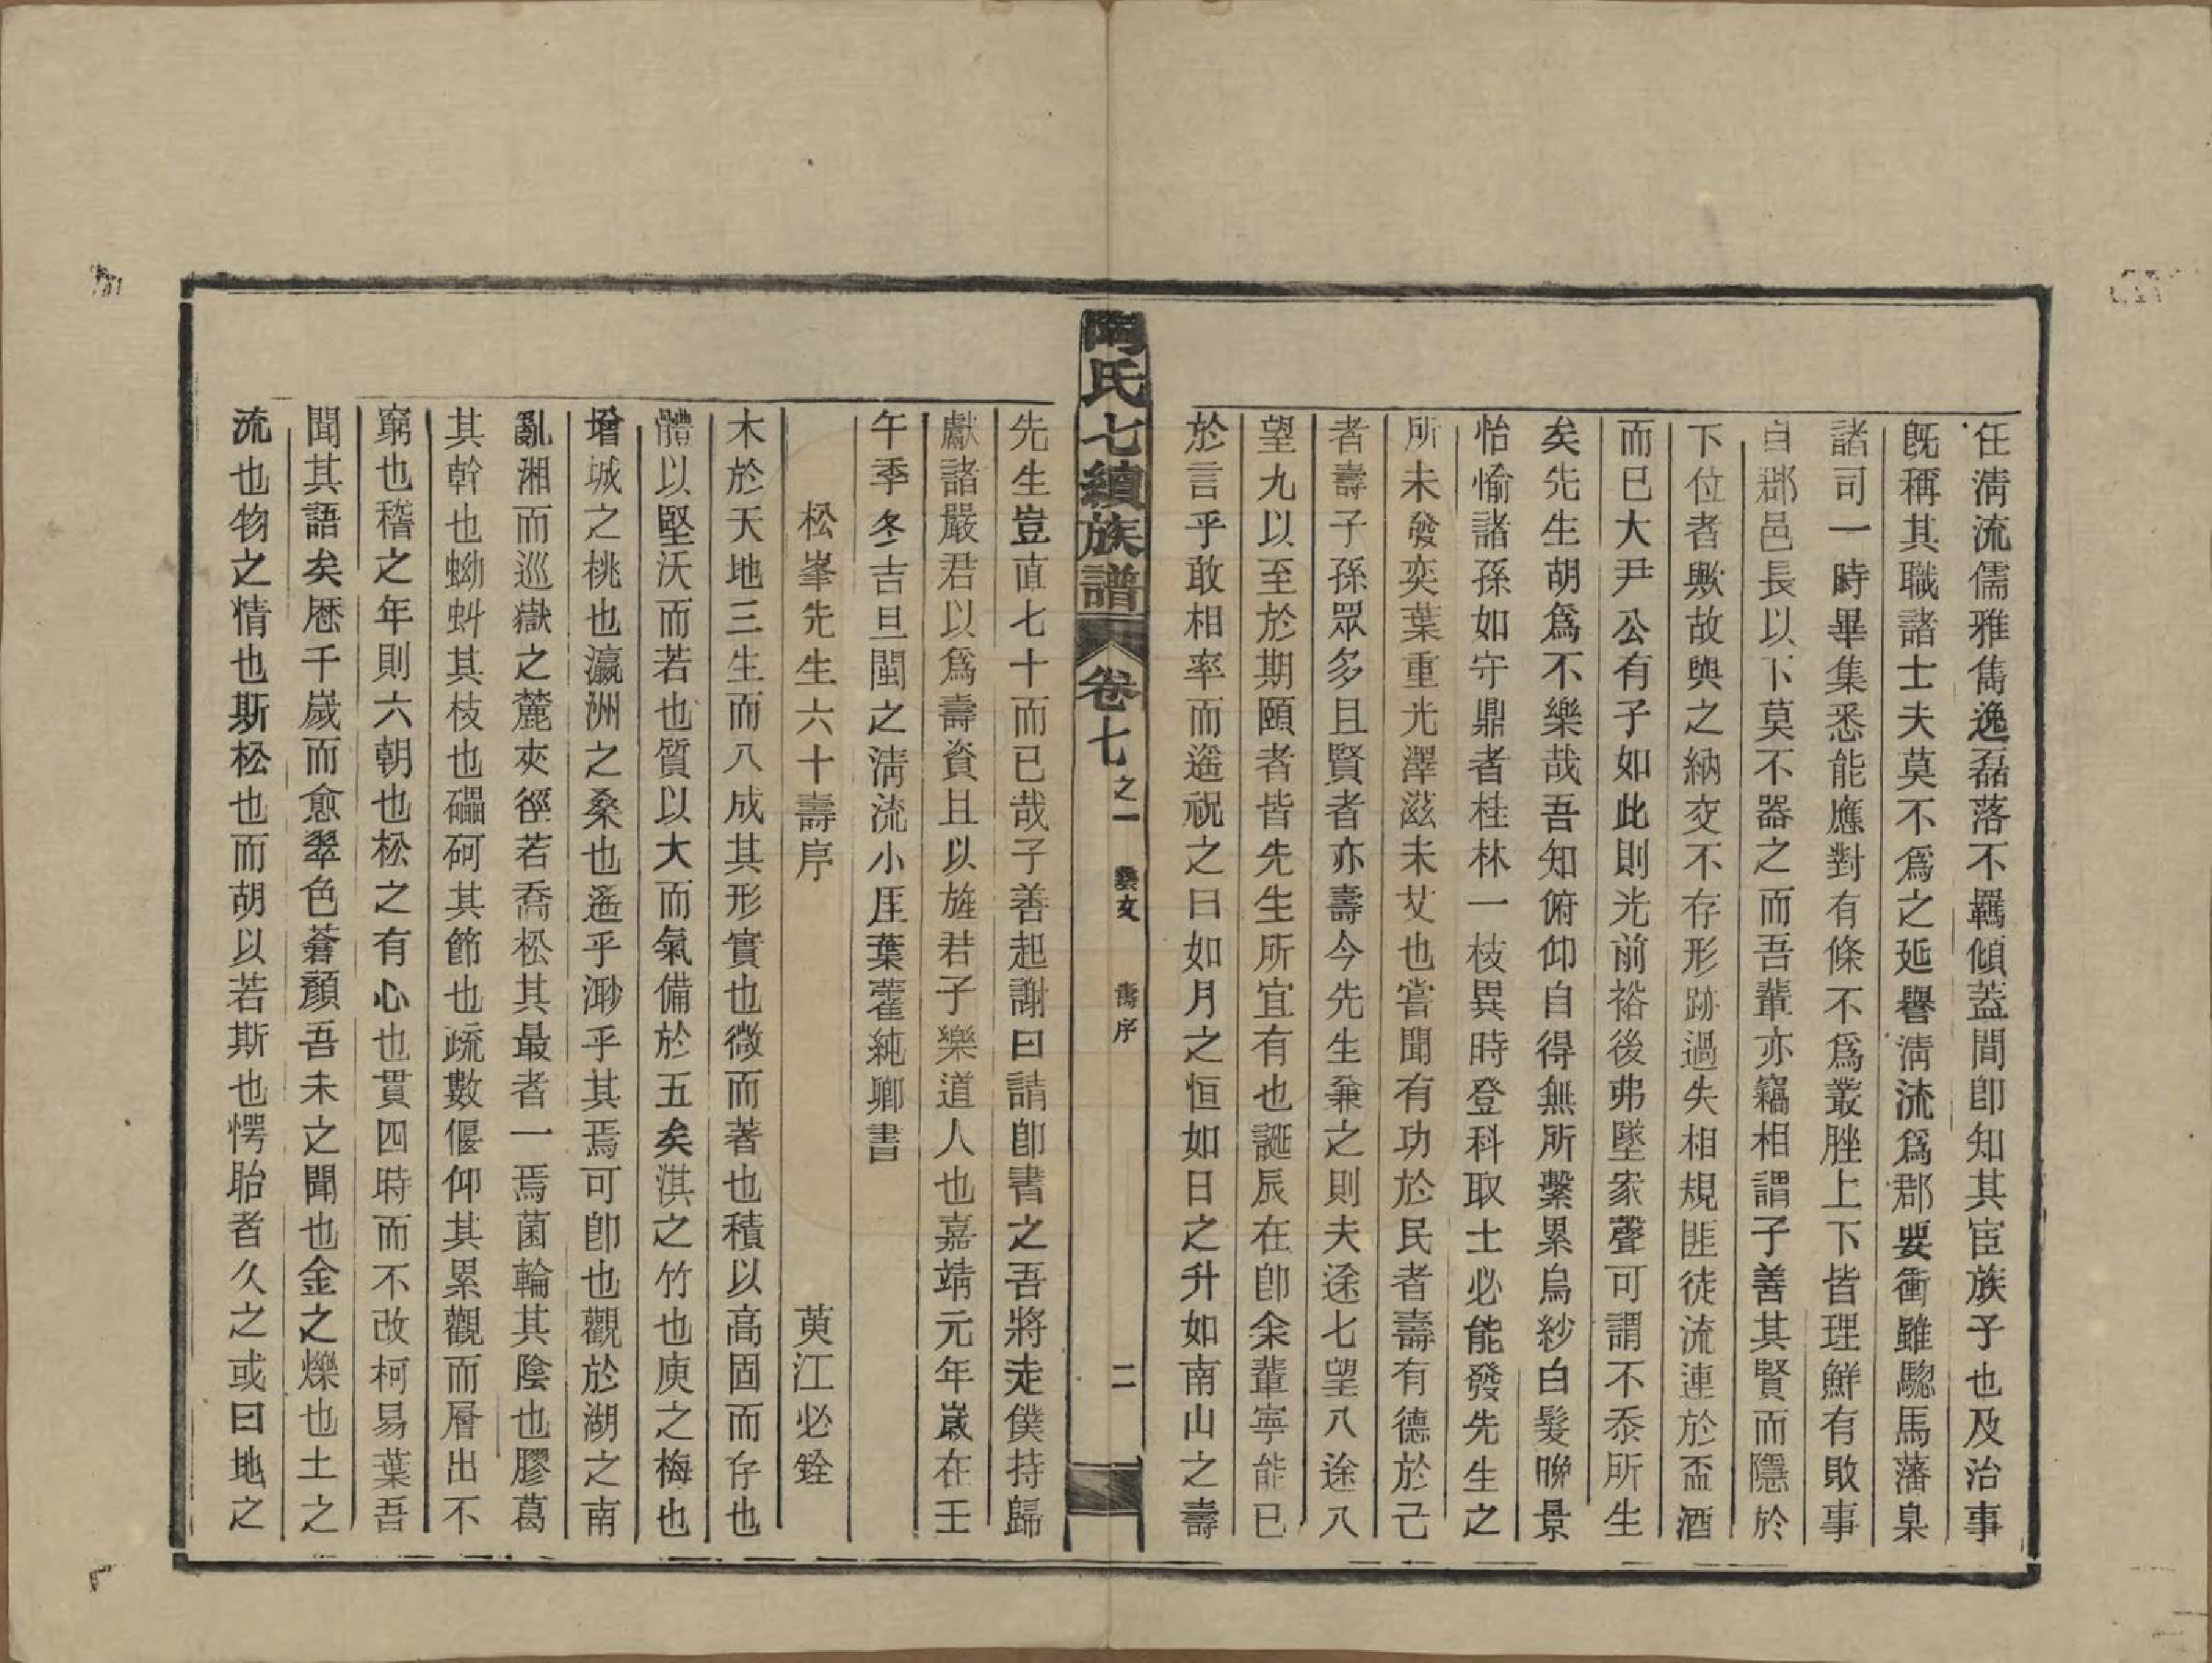 任淸流儒雅雋逸磊落不羈傾蓋間卽知其宦族子也及治事
旣稱其職諸士夫莫不爲之延譽淸流爲郡要衝雖驄馬藩臬
諸司一時畢集悉能應對有條不爲叢脞上下皆理鮮有敗事
自郡邑長以下莫不器之而吾輩亦竊相謂子善其賢而隱於
下位者歟故與之納交不存形跡過失相規匪徒流連於盃酒
而已大尹公有子如此則光前裕後弗墜家聲可謂不忝所生
矣先生胡爲不樂哉吾知俯仰自得無所繫累烏紗白髮晚景
怡愉諸孫如守鼎者桂林一枝異時登科取士必能發先生之
所未發奕葉重光澤滋未艾也嘗聞有功於民者壽有德於己
者壽子孫眾多且賢者亦壽今先生兼之則夫途七望八途八
望九以至於期頤者皆先生所宜有也誕辰在卽余輩寧能已
於言乎敢相率而遙祝之曰如月之恒如日之升如南山之壽
陶氏七續族譜 卷七之一 藝文 壽序 二
先生豈直七十而已哉子善起謝曰請卽書之吾將走僕持歸
獻諸嚴君以爲壽資且以旌君子樂道人也嘉靖元年歲在壬
午季冬吉旦閩之淸流小厓葉藋純卿書
松峯先生六十壽序 黄江必銓
木於天地三生而八成其形實也微而著也積以高固而存也
體以堅沃而若也質以大而氣備於五矣淇之竹也庾之梅也
增城之桃也瀛洲之桑也遙乎渺乎其焉可卽也觀於湖之南
亂湘而巡嶽之麓夾徑若喬松其最者一焉菌輪其陰也膠葛
其幹也蚴虯其枝也礧砢其節也疏數偃仰其累觀而層出不
窮也稽之年則六朝也松之有心也貫四時而不改柯易葉吾
聞其語矣歷千歲而愈翠色蒼顏吾未之聞也金之爍也土之
流也物之情也斯松也而胡以若斯也愕眙者久之或曰地之